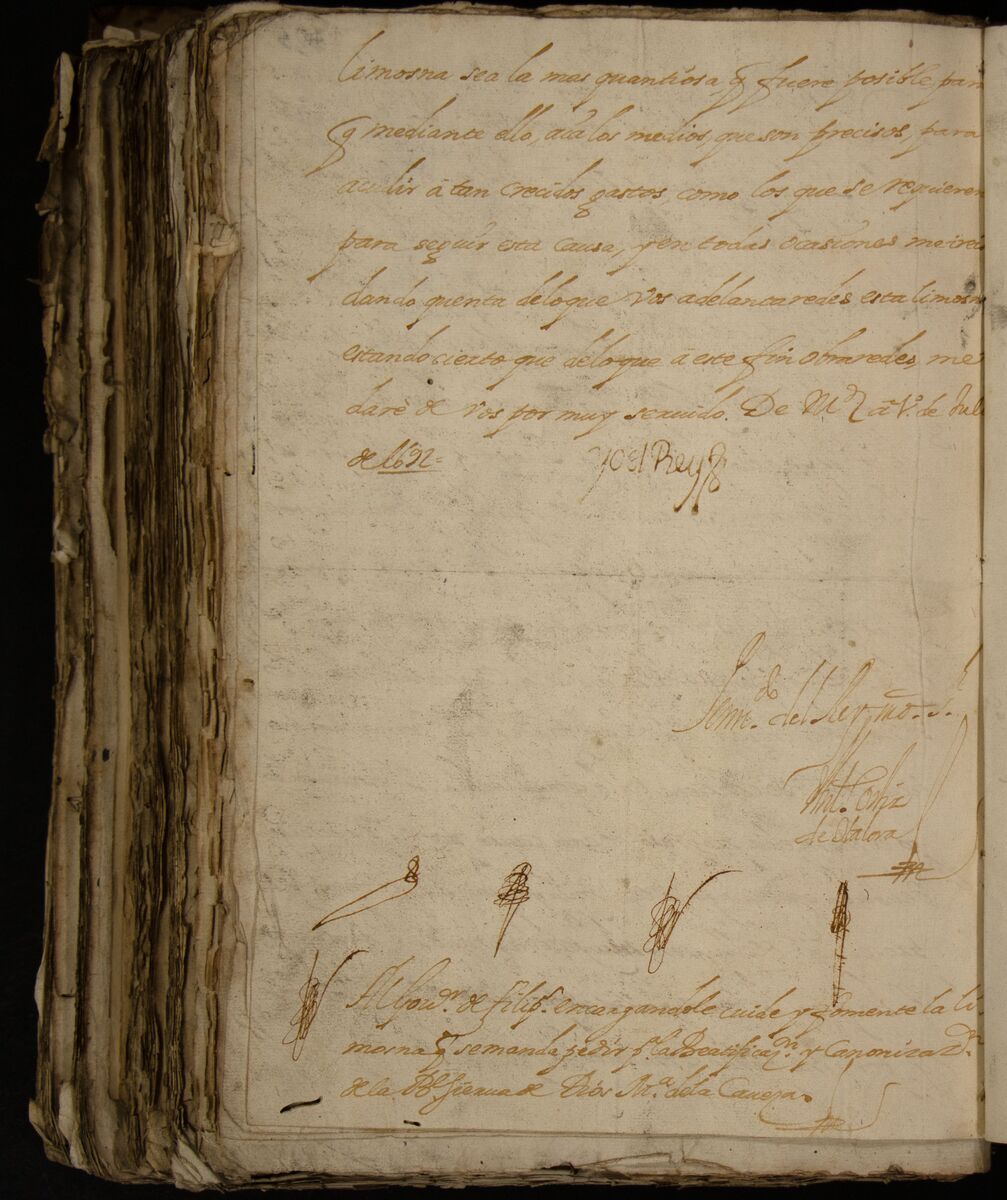 limosna sea la mas quantiosa, q̃ fuere posible, par
q̃ mediante ello, aia los medios, que son precisos, para
acudir â tan crecidos gastos, como los que se reqüieren
para seguir esta causa, y en todas ocasiones me ireis
dando quenta delo que vos adelantaredes esta limosn
estando cierto que delo que â este fin obraredes, me
darè de vos por muy seruido. De M.d â 1.º de Jul
de 1692=
Yo el Rey
Por m.do del Rey nro. s.r
Ant.º Ortiz
de Otalora
Al Gou.or de filip.s encargandole cuide y fomente la li
mosna q̃ se manda pedir p.a la Beatificaz.on y Canoniza.on
de la V.e Sierua de Dios M.a dela Caueza.